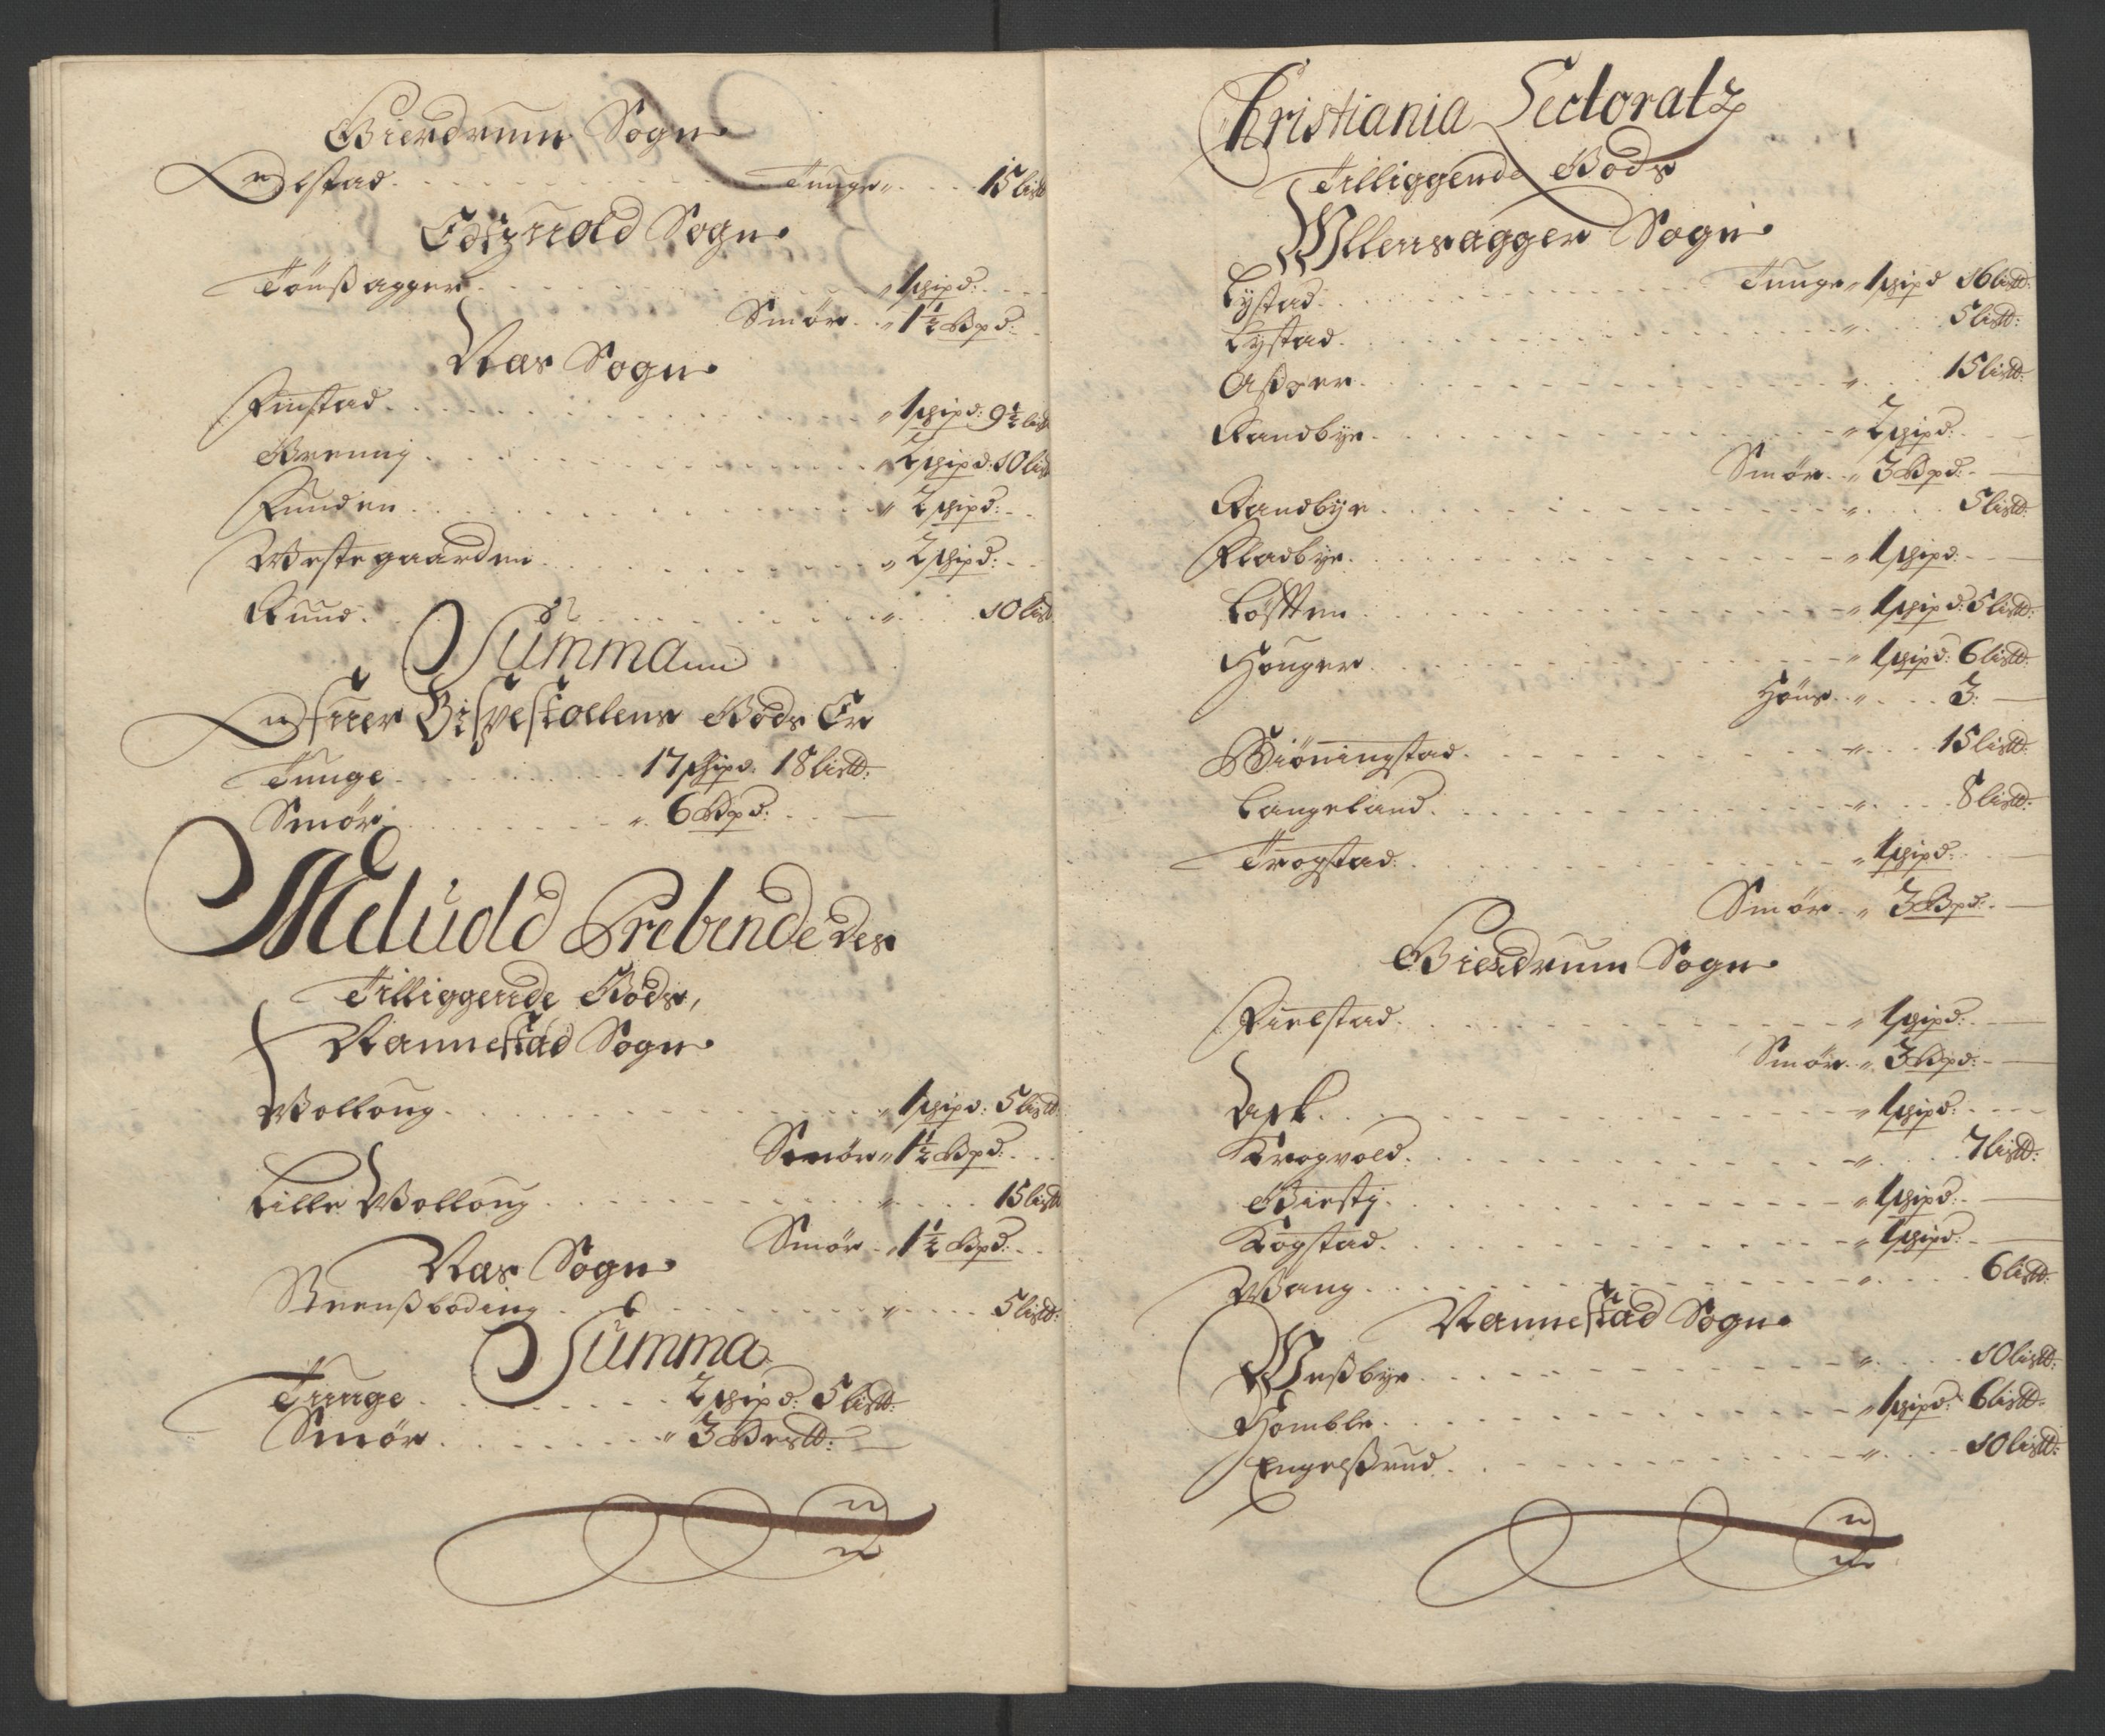 Gierdrum Sogn
Elstad . . . Tunge " . . . 15 listd
Edtzuold Sogn
Tönsagger . . . " 1 skipd: . . .
Smör . " 1½ Bpd:
Nas Sogn
Finstad . . . " 1 skipd: 9½ list
Brenny . . . " 2 skipd: 10 list
Funden . . . " 2 skipd: . .
Westegaarden . . . " 2 skipd: . .
Ruud . . . " . . 10 list
Summa
Bispestoelens Gods Er
Tunge . . . 17 skipd. 18 listd:
Smör . . . " 6 Bpd: . .
Meluold Prebende des
Tilliggende Gods,
Nannestad Sogn
Wolloug . . . " 1 skipd: 5 listd:
Smör " 1½ Bpd: . .
Lille Wolloug . . . " . . . 15 listd
Smör . " 1½ Bpd: . .
Nas Sogn
Brensboding . . . " . . . 5 listd:
Summa
Tunge . . . 2 skipd: 5 listd:
Smör . . . " 3 Bestd:
Christiania Lectoratz
Tilliggende Gods
Ullensagger Sogn
Lystad . . . Tunge " 1 skipd 16 listd:
Lystad . . . " . . 5 listd:
Asper . . . " . . 15 listd:
Randbye . . . " 2 skipd: . .
Smör . " 3 Bpd: .
Randbye . . . " . . 5 listd:
Fladbye . . . " 1 skipd: .
Løstten . . . " 1 skipd: 5 listd:
Houger . . . " 1 skipd: 6 listd:
Höns . " . . . 3:
Biöningstad . . . " . . 15 listd:
Langeland . . . " . . 8 listd:
Trogstad . . . " 1 skipd: .
Smör . " 3 Bpd: .
Gierdrum Sogn
Fielstad . . . " 1 skipd: .
Smör . " 3 Bpd: .
Ask . . . " 1 skipd: . . .
Krogvold . . . " . . 7 listd:
Giesty . . . " 1 skipd: .
Kogstad . . . " 1 skipd: .
Wang . . . " . . . 6 listd:
Nannestad Sogn
Wesbye . . . " . . . 10 listd:
Homble . . . " 1 skipd: 6 listd:
Engelsrud . . . " . . . 10 listd: